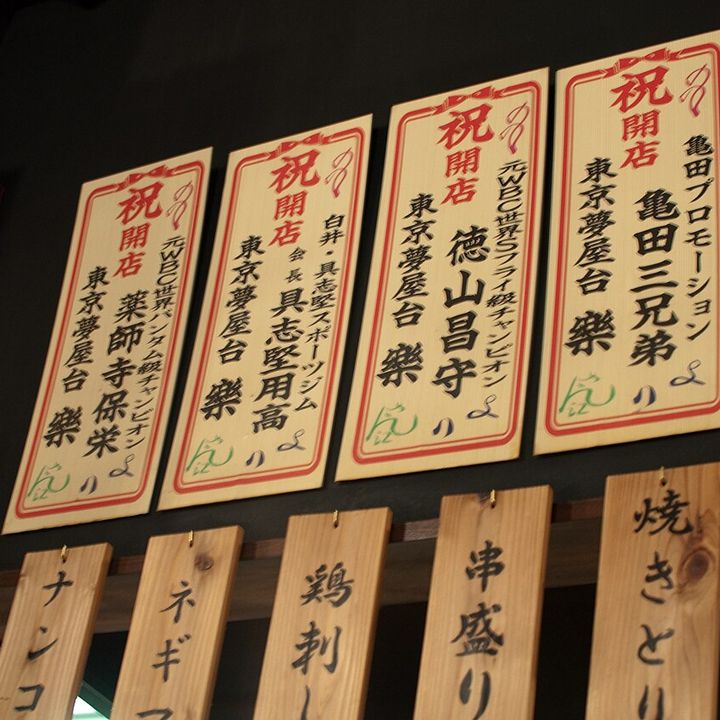 祝開店
亀田プロモーション
亀田三兄弟
より
東京夢屋台 樂
祝開店
元WBC世界Sフライ級チャンピオン
徳山昌守
より
東京夢屋台 樂
祝開店
白井・具志堅スポーツジム
会長 具志堅用高
より
東京夢屋台 樂
祝開店
元WBC世界バンタム級チャンピオン
薬師寺保栄
より
東京夢屋台 樂
焼きとり
串盛り
鶏刺し
ネギマ
ナンコ